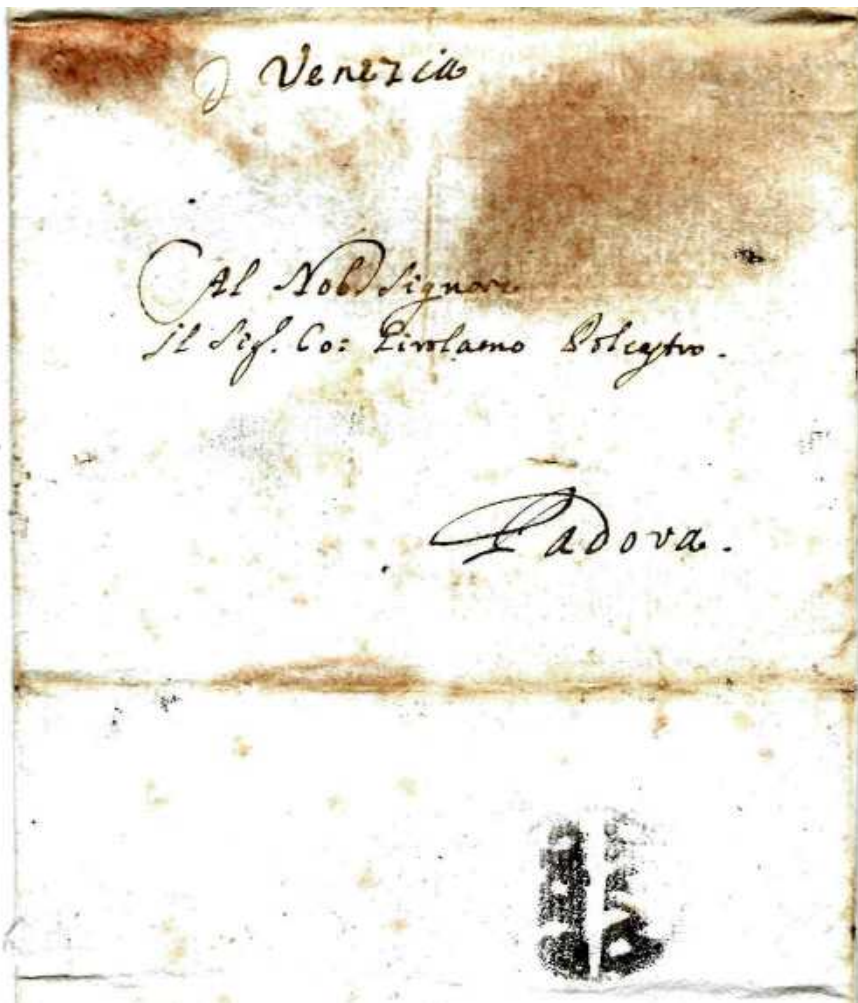 D Venezia
Al Nob Signore
Il Sig. Co: Girolamo Polcastro.
Padova.